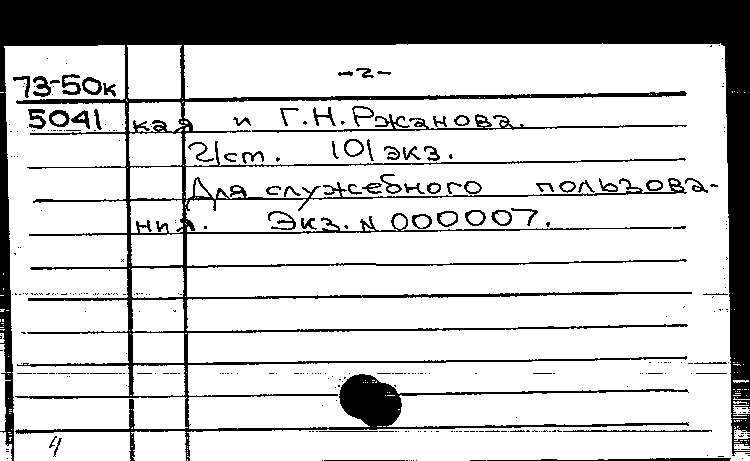 -2-
73-50к
5041
кая и Г.Н. Ржанова.
2/ст. 101 экз.
Для служебного пользова-
ния. Экз. N 000007.
4